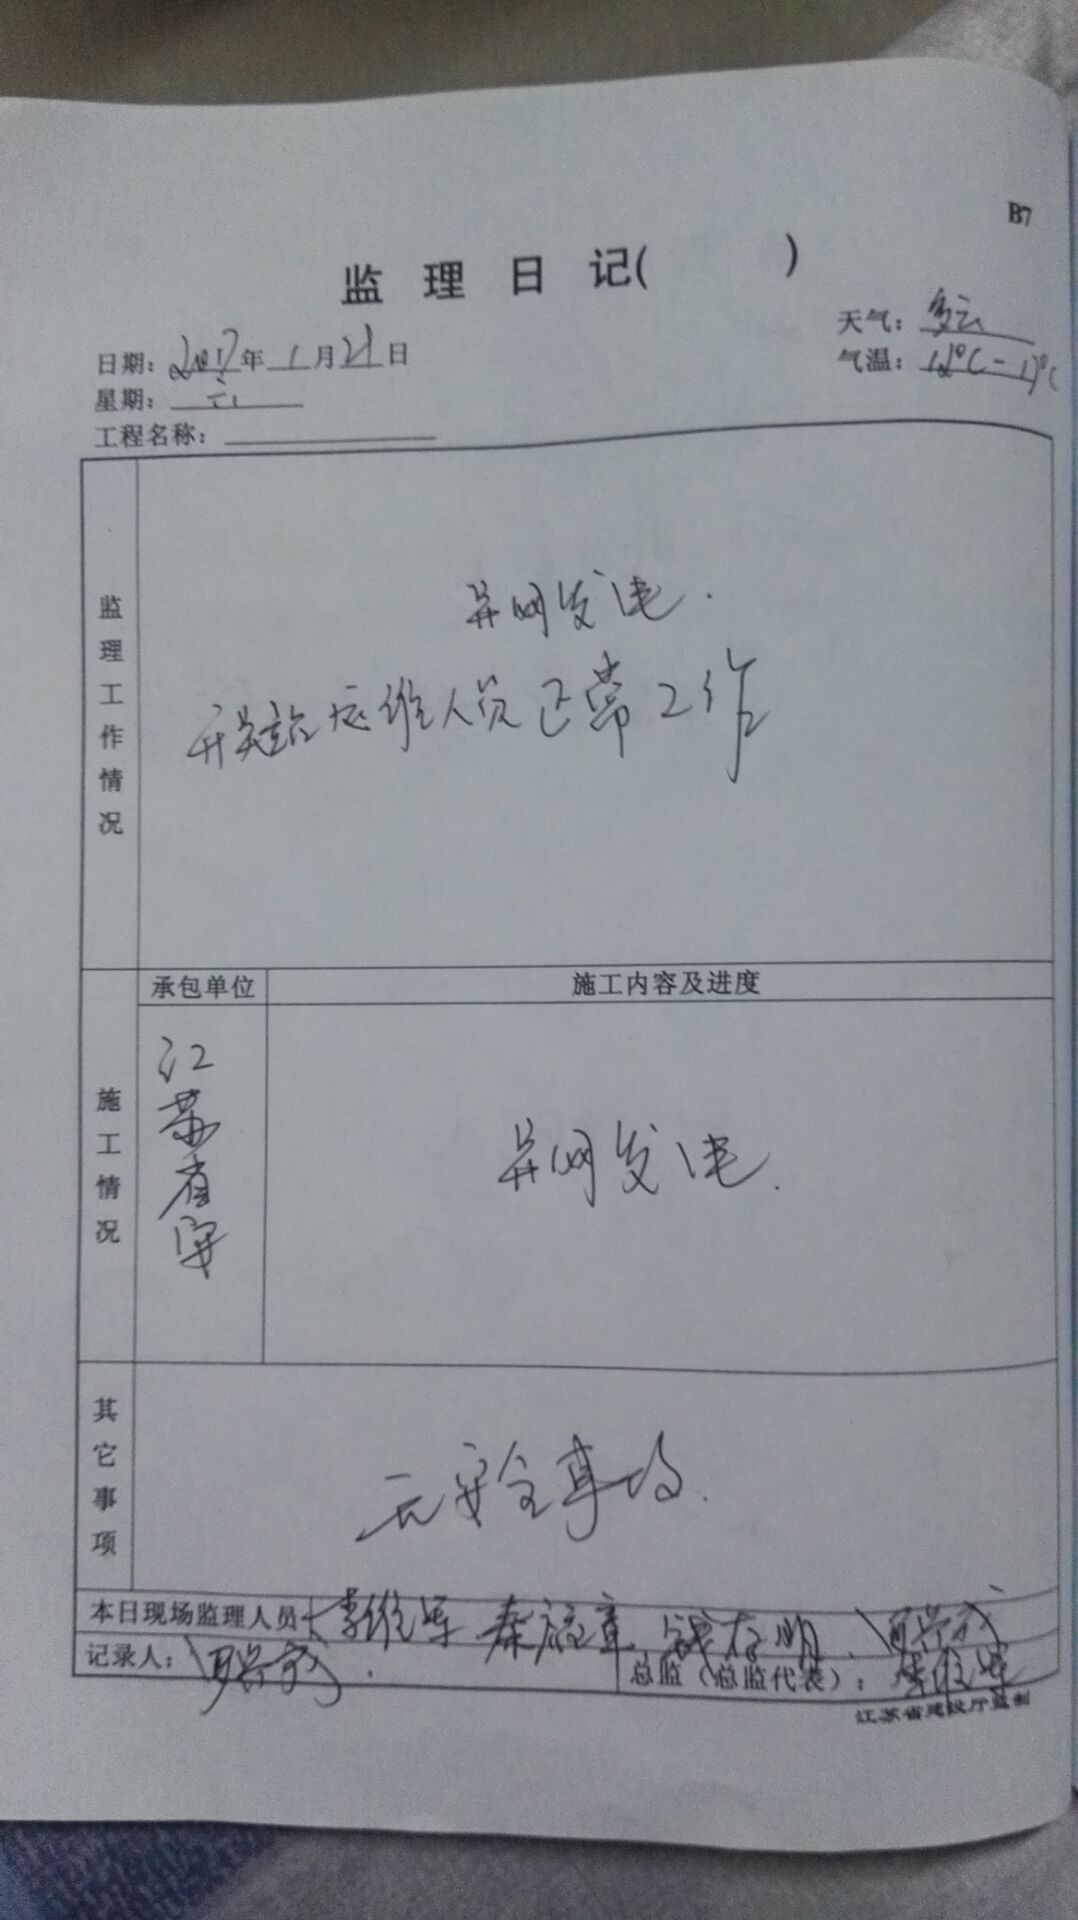 B7
监理日记( )
天气：多云
日期：2017年1月21日
气温：12℃-17℃
星期：六
工程名称：
监理工作情况
并网发电.
开关站运维人员正常工作
承包单位
施工内容及进度
施工情况
江苏省安
并网发电.
其它事项
无安全事故.
本日现场监理人员
记录人：
总监（总监代表）：
江苏省建设厅监制